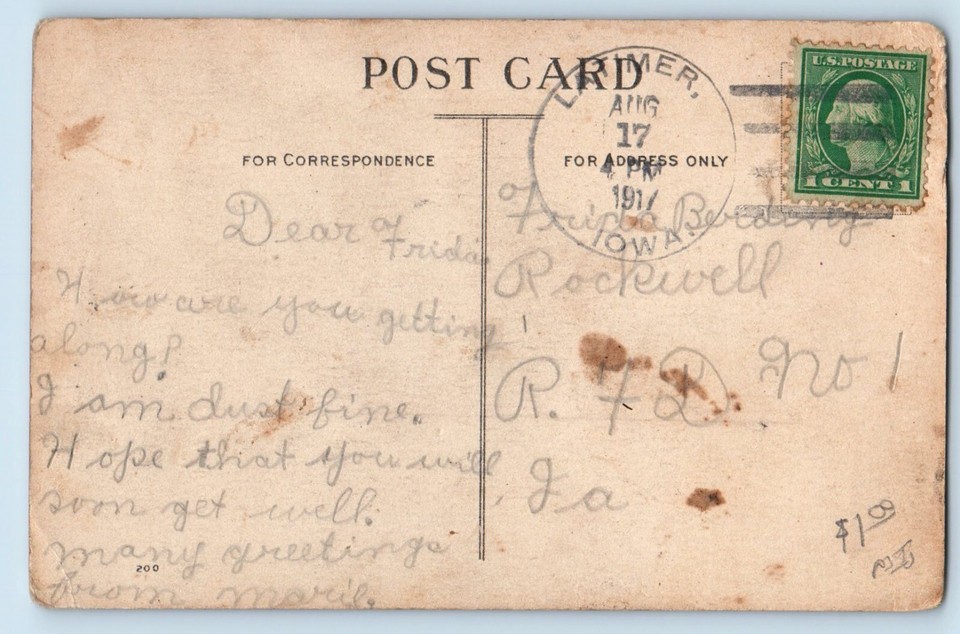 POST CARD
LATIMER,
AUG
17
4 PM
1917
IOWA.
U.S. POSTAGE
1 CENT 1
FOR CORRESPONDENCE
FOR ADDRESS ONLY
Dear Frida
How are you getting
along?
I am dust fine.
Hope that you will
soon get well.
many greetings
from
200
Frida
Rockwell
R. F D. No 1
Ia
$1